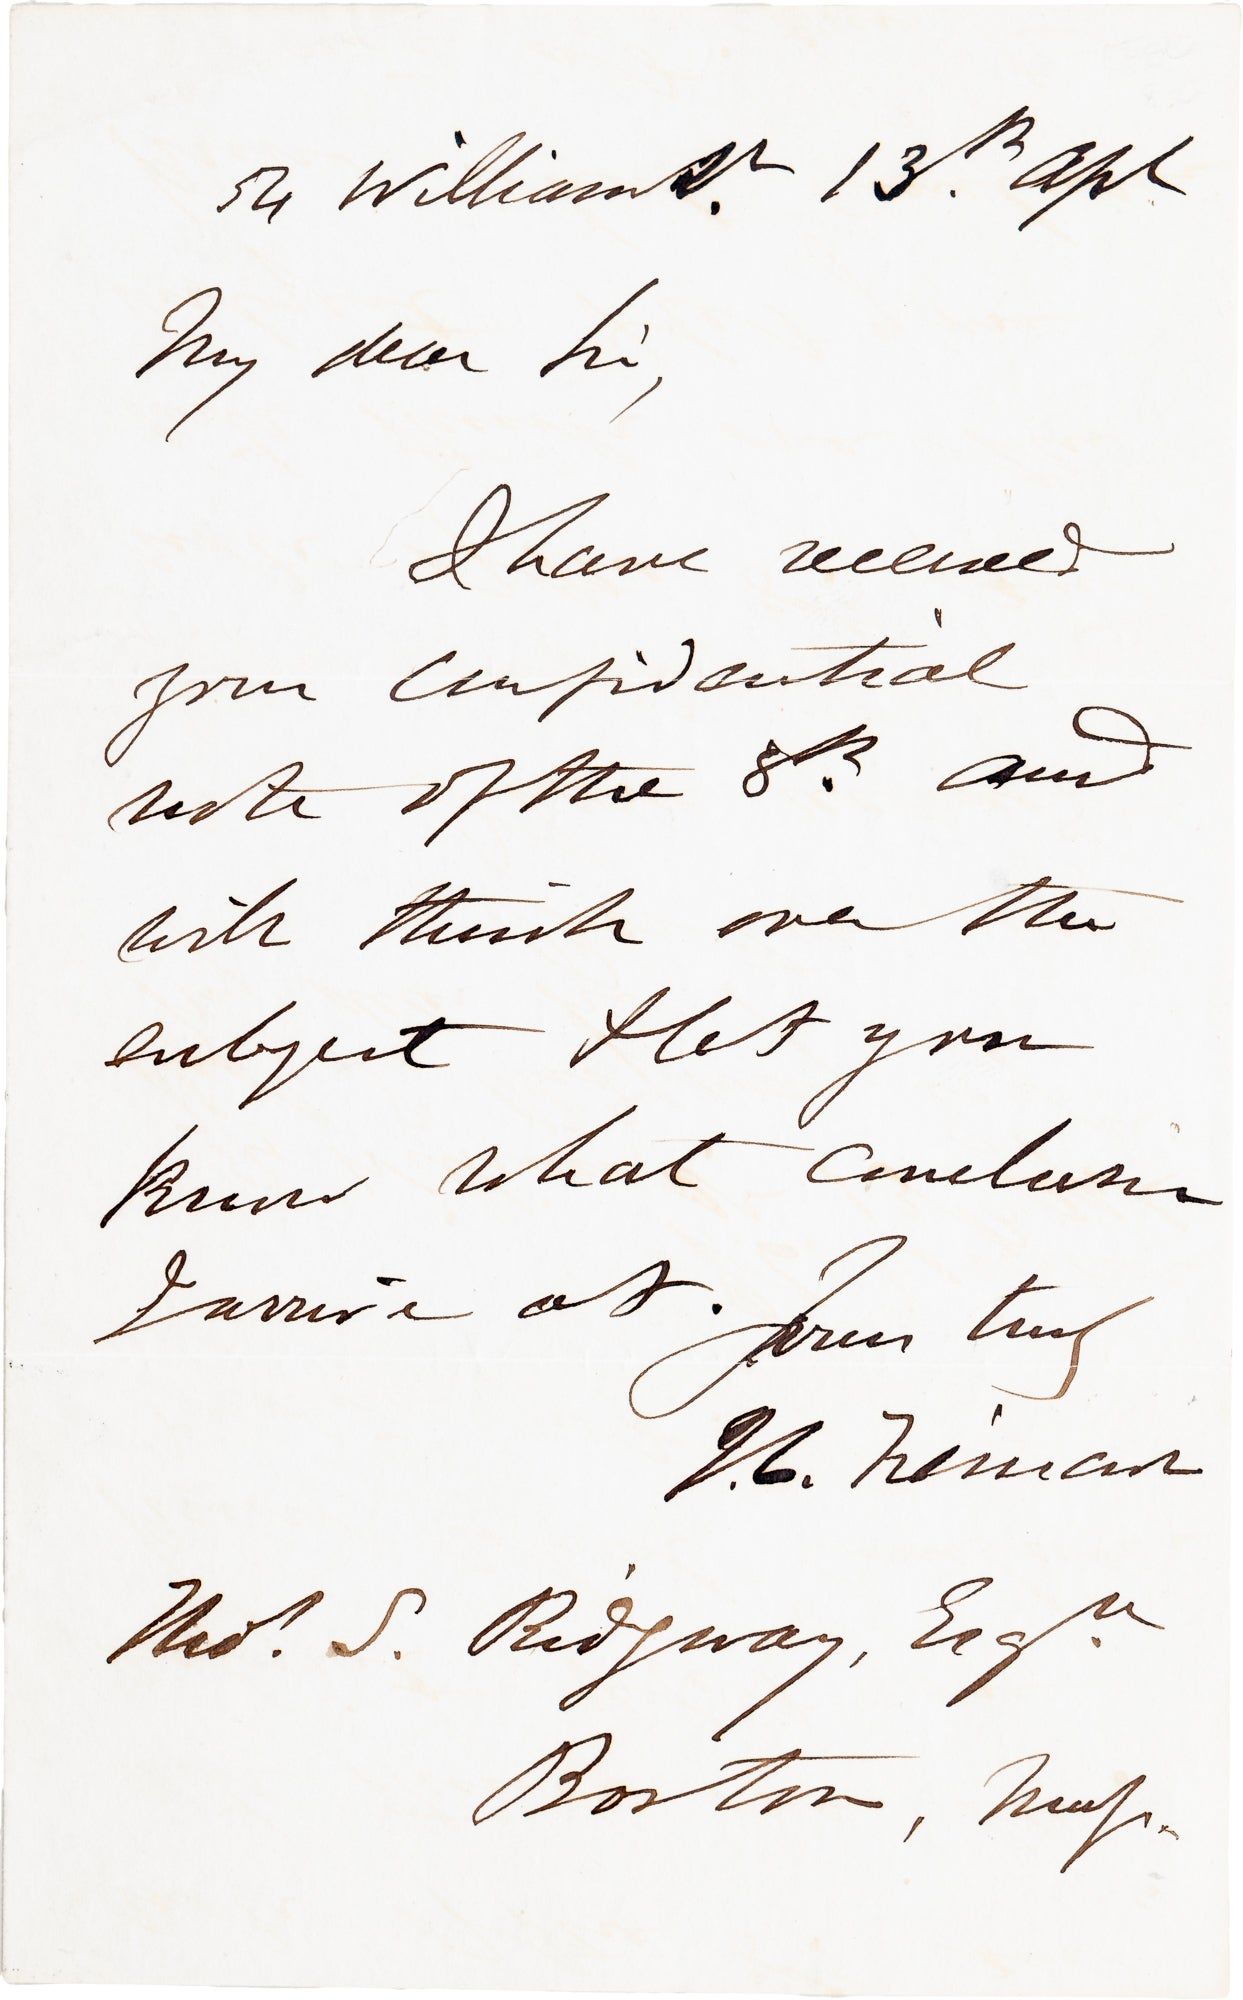 54 William St. 13th. Apl
My dear Sir,
I have received
your confidential
note of the 8th. and
will think over the
subject & let you
know what conclusion
I arrive at. Yours truly
Thos. S. Ridgway, Esqr.
Boston, Mass.